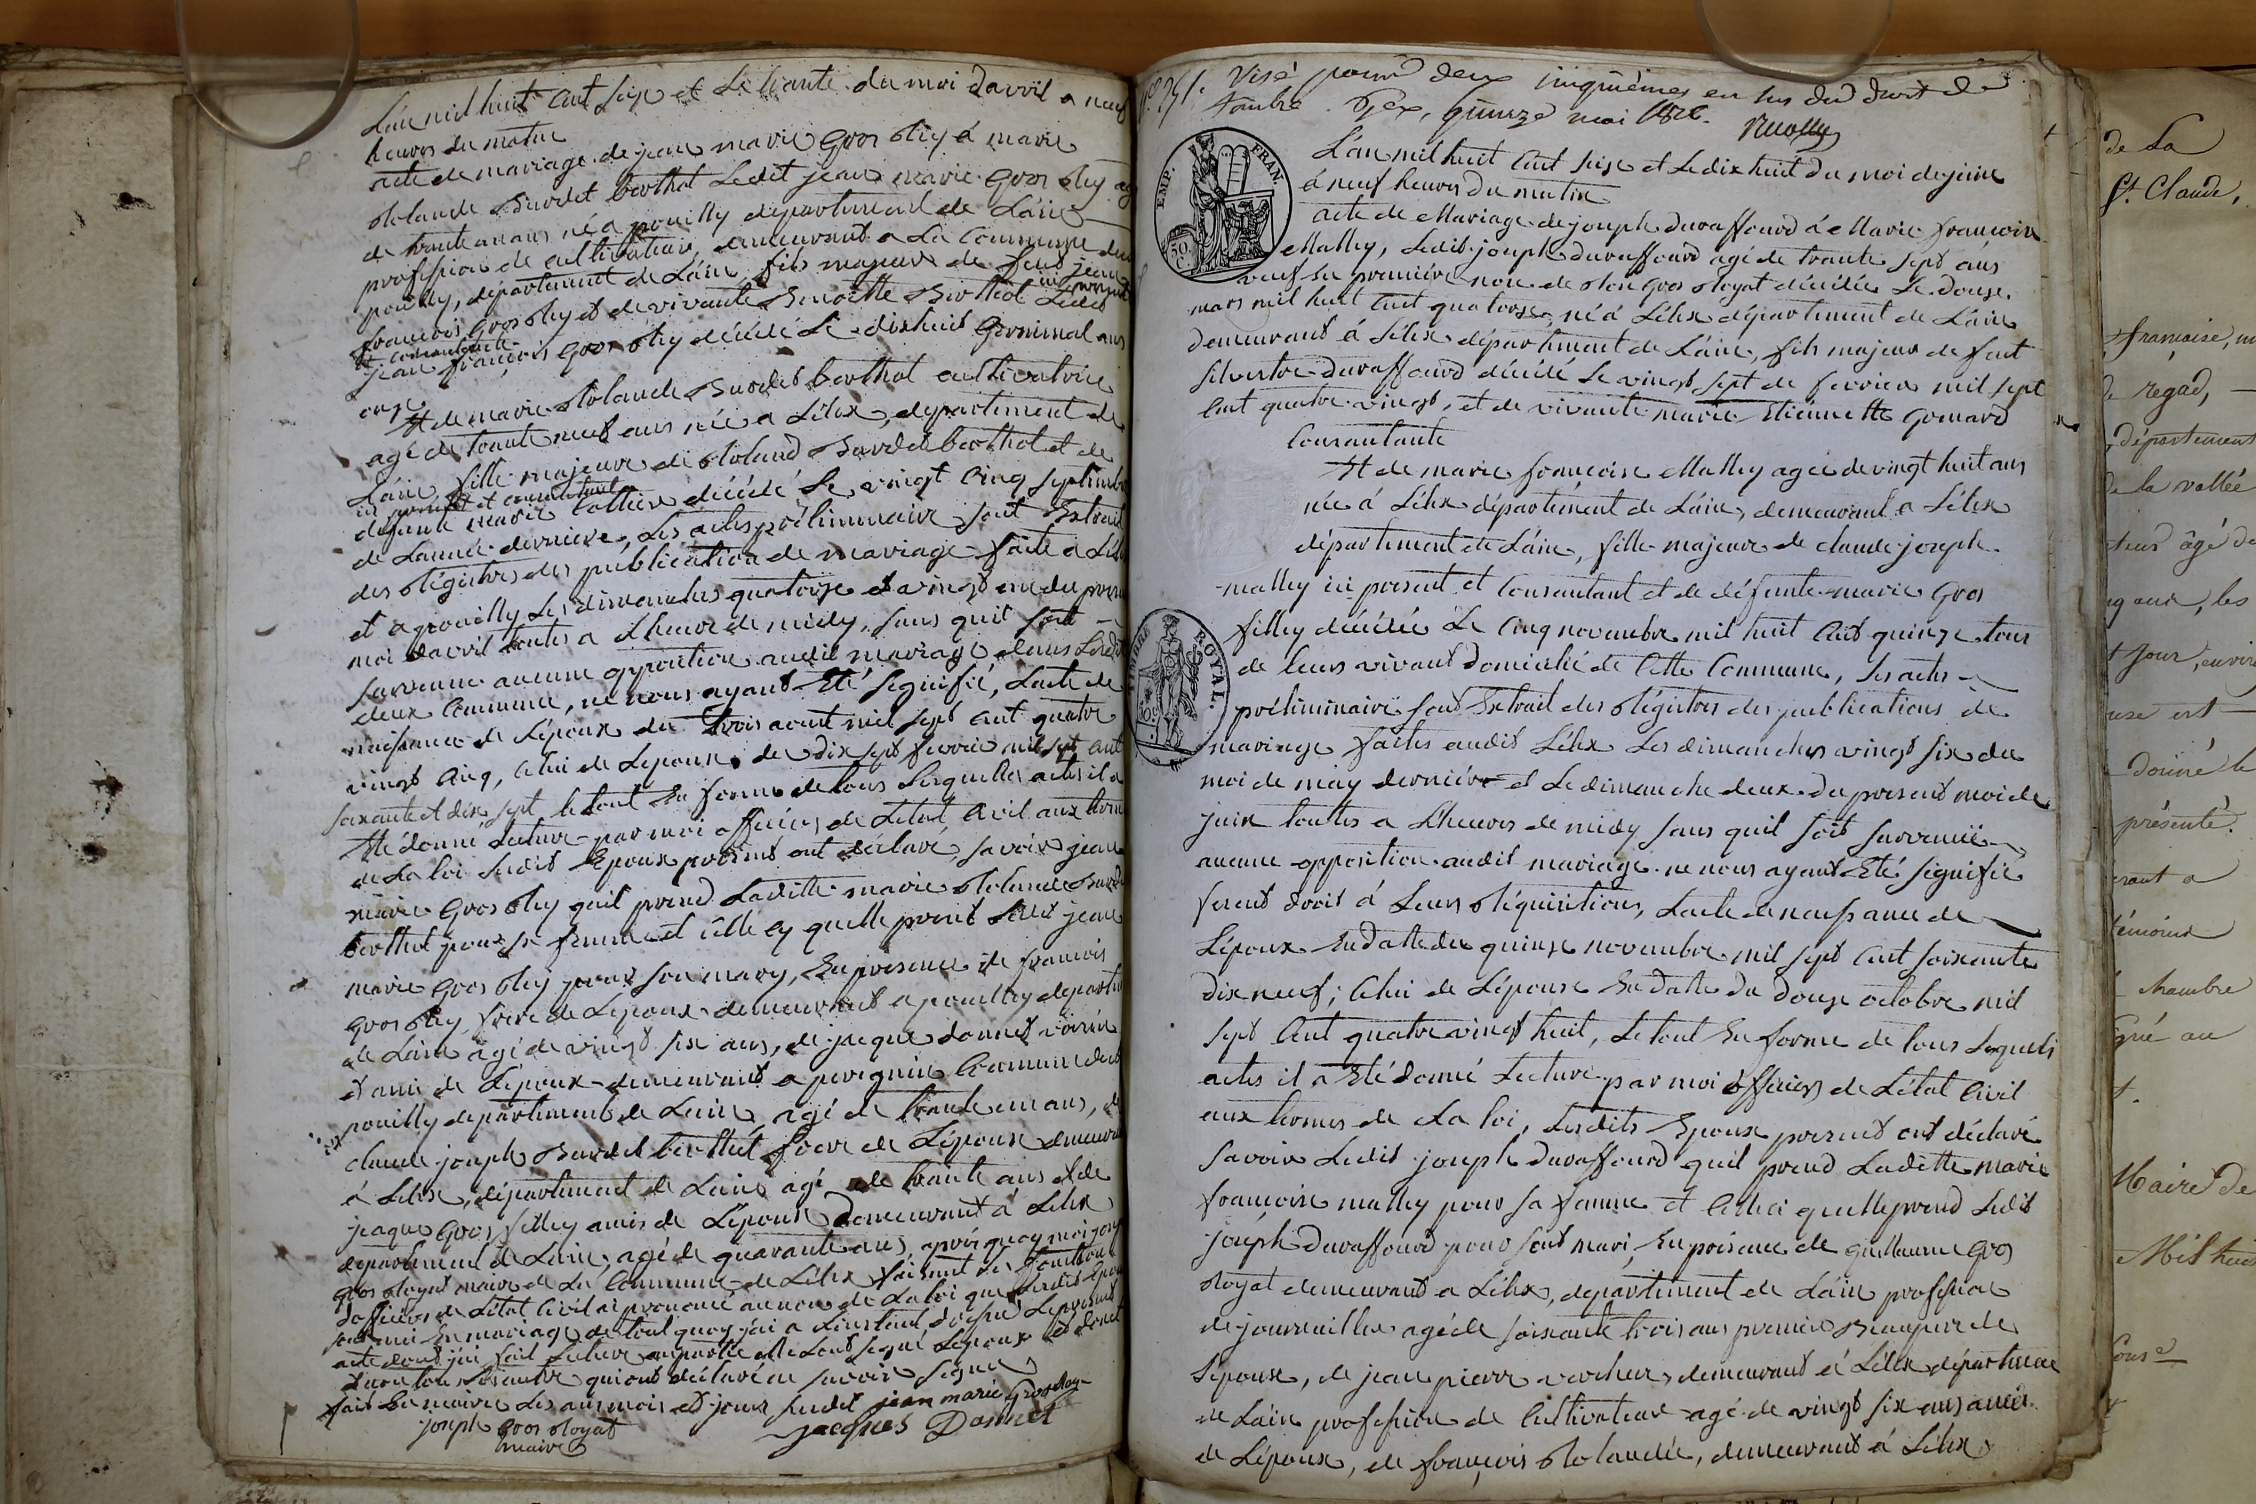 L'an mil huit cent seize et le trente du moi d'avril a neuf
heures du matin
acte de mariage de jean marie Gros Rey á marie
Rolande Burdet berthot Ledit jean marie Gros Rey agé
de trante un ans né a pouilly département de L'ain
profession de cultivateur, demeurant a La Commune de
pouilly, département de L'ain, fils majeur de feut jean
françois Gros Rey et de vivante Benoitte Berthot Ledit
ici present
et consentante
jean françois Gros Rey décédé Le dixhuit Germinal ans
onze
Et de marie Rolande Burdet berthot cultivatrice
agé de trante neuf ans née a Lélex, département de
L'ain fille majeure de Roland Burdet berthot et de
ici present et consentant
défunte marie décédé Le vingt cinq septembre
de L'année derniere, Les actes préliminaire sont Extrait
des Régistres des publication de mariage faite a Lélex
et a pouilly Les dimanches quatorze et vingt un du present
moi d'avril toutes a L'heure de midy, sans quil soit
survenue aucune opposition audit mariage dans Lesdit
deux Commune, ne nous ayant Eté signifié, L'acte de
naissance de L'époux du trois aout mil sept cent quatre
vingt cinq, celui de L'epouse de dix sept fevrier mil sept cent
soixante et dix sept le tout En forme de tous Lesquelles actes il a
Eté donné Lecture par moi officier de L'etat Civil aux termes
de La loi Lesdit Epoux présent ont déclaré savoir jean
marie Gros Rey quil prend Laditte marie Rolande Burdet
berthot pour sa femme et celle cy quelle prend Ledit jean
marie Gros Rey pour son mary, En presence de francois
Gros Rey frere de L'epoux demeurant a pouilly departement
de L'ain agé de vingt six ans, de jacque donnet voisin
et ami de L'époux demeurant a peregnin Commune de
pouilly departement de L'ain, agé de trante un ans, de
claude joseph Burdet berthet frere de L'épouse demeurant
á Lélex, département de L'ain agé de trante ans et de
jeaque Gros filley amis de L'épouse demeurant á Lélex
departement de L'ain, agé de quarante ans, après quoy moi joseph
gros Royat maire de La Commune de Lélex faisant les fonctions
d'officier de L'état Civil ai prononcé au nom de La loi que Lesdit Epoux
sont uni En mariage de tout quoy j'ai a L'instant dréssé Le présent
acte dont j'ai fait Lecture au partie
qui ont déclaré ne savoir signer
fait En mairie Les ans mois et jours susdit jean marie Gros Rey
joseph gros Royat jacques Donnet
maire
Visé pour deux cinquièmes en sus du droit de
timbre. Gex, quinze mai 1816.
EMP. FRAN.
L'an mil huit cent seize et Le dix huit du moi de juin
á neuf heures du matin
acte de Mariage de joseph duraffourd á Marie françoise
Malley, Ledit joseph duraffourd agé de trante sept ans
veuf En première noce de Gros Royat décédée Le douze
mars mil huit cent quatorze, né á Lélex département de L'ain
demeurant á Lélex département de L'ain, fils majeur de feut
silvestre duraffourd décédé Le vingt sept de fevrier mil sept
cent quatre vingt, et de vivante marie Etiennette Gomard
Consantante
Et de marie françoise Malley agée de vingt huit ans
née á Lélex département de L'ain, demeurant a Lélex
département de L'ain, fille majeure de claude joseph
malley ici present et consantant et de défunte marie Gros
filley décédée Le cinq novembre mil huit cent quinze tous
de leurs vivant domicilié de Cette Commune, Les actes
préliminaire sont Extrait des Régistres des publications de
mariage faites audit Lélex Les dimanches vingt six du
moi de may derniére et Le dimanche deux du present moi de
juin toutes a L'heures de midy sans quil soit survenue
aucune opposition audit mariage ne nous ayant Eté signifié
ferent droit á Leurs Réquisitions, L'acte de naissance de
L'époux En datte du quinze novembre mil sept cent soixante
dix neuf; Celui de L'épouse En datte du douze octobre mil
sept cent quatre vingt huit, Le tout En forme de tous Lesquels
actes il a Eté donné Lecture par moi officier de L'état Civil
aux termes de La loi, Lesdits Epoux présent ont déclaré
savoir Ledit joseph duraffourd quil prend Laditte marie
françoise malley pour sa famme et Celleci quelle prend Ledit
joseph duraffourd pour sont mari, En présence de Guillaume Gros
Royat demeurant a Lélex, département de L'ain profession
de journaillier agé de soixante trois ans premier Beaupere de
L'épouse, de jean pierre vercher demeurant á Lélex département
de L'ain profession de Cultivateur agé de vingt six ans amis
de L'époux, de françois Rolandée, demeurant á Lélex
ROYAL
de La
St. Claude,
française,
de regad,
département
de la vallée
âgé de
ans, les
jour,
est
donné le
présenté.
a
témoins
chambre
au
Maire de
Mil huit